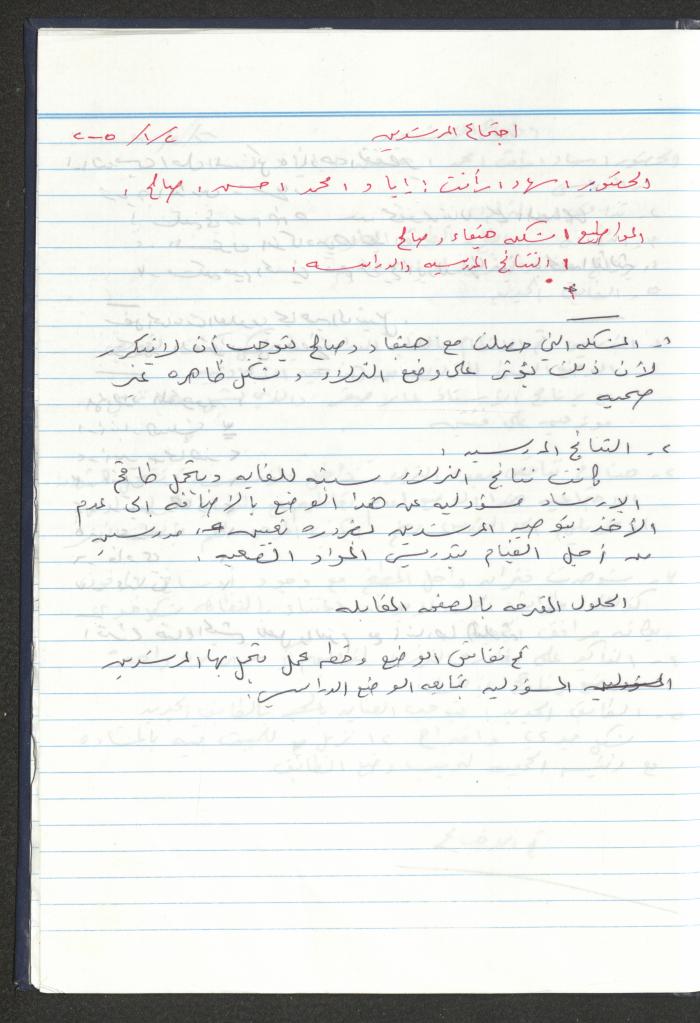 اجتماع المرشدين ٢٠٠٥/١/٢
الحضور : سهاد ، رأفت ، إياد ، محمد ، حسن ، صالح .
المواضيع ، مشكلة هيفاء وصالح
، النتائج المدرسيه والدراسه .
١- المشكله التي حصلت مع هيفاء وصالح يتوجب أن لا تتكرر
لأن ذلك يؤثر على وضع النزلاء وتشكل ظاهره غير
صحيه
٢- النتائج المدرسيه :
كانت نتائج النزلاء سيئه للغايه ويتحمل طاقم
الإرشاد مسؤوليه عن هذا الوضع بالاضافة إلى عدم
الأخذ بتوصيه المرشدين لضروره تعيين مدرسين
من أجل القيام بتدريس المواد الصعبه .
الحلول المقترحه بالصفحه المقابله
تم نقاش الوضع وخطه عمل يتحمل بها المرشدين
المسؤوليه المسؤوليه بمتابعه الوضع الدراسي .